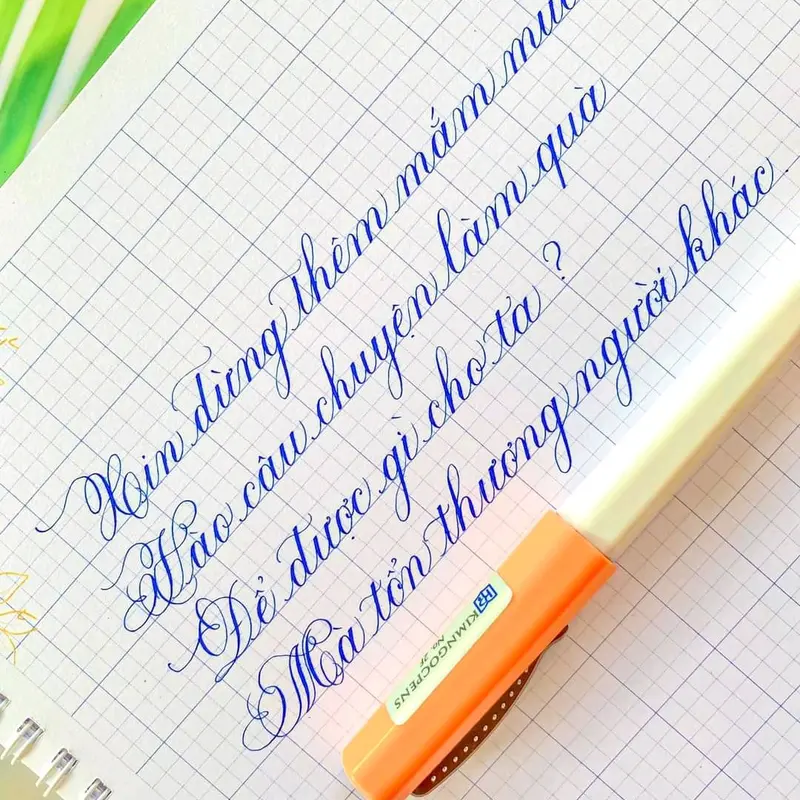 Xin đừng thêm mắm
Vào câu chuyện làm quà
Để được gì cho ta ?
Mà tổn thương người khác
KIMNGOCPENS
No. 2F